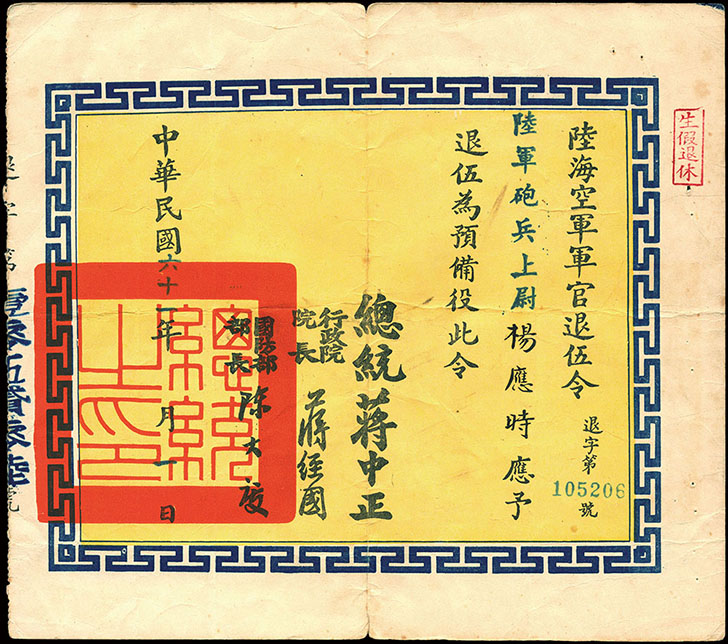 生假退休
陸海空軍軍官退伍令
退字第105206號
陸軍砲兵上尉楊應時應予
退伍為預備役此令
總統蔣中正
行政院
院長
蔣經國
國防部
部長
陳大慶
中華民國六十一年 月一日
總統之印
退字第壹零伍貳零陸號